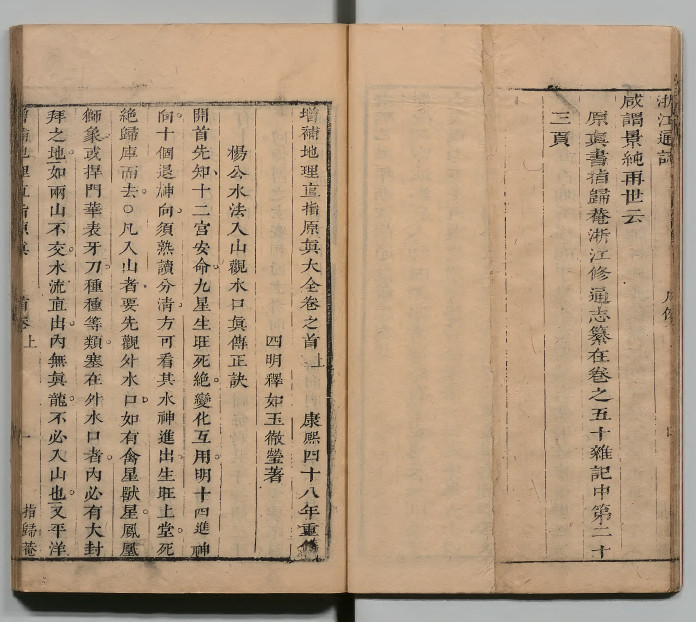 浙江通志
咸謂景純再世云
原眞書指歸菴浙江修通志纂在卷之五十雜記中第二十
三頁
增補地理直指原眞大全卷之首上 康熙四十八年重鐫
四明釋如玉徹瑩著
楊公水法入山觀水口眞傳正訣
開首先知十二宮安命九星生旺死絕變化互用明十四進神
向十個退神向須熟讀分清方可看其水神進出生旺上堂死
絕歸庫而去○凡入山者要先觀外水口如有禽星獸星鳳凰
獅象或捍門華表牙刀種種等類塞在外水口者內必有大封
拜之地如兩山不交水流直出內無眞龍不必入山也又平洋
增補地理直指原眞 首卷上 一 指歸菴